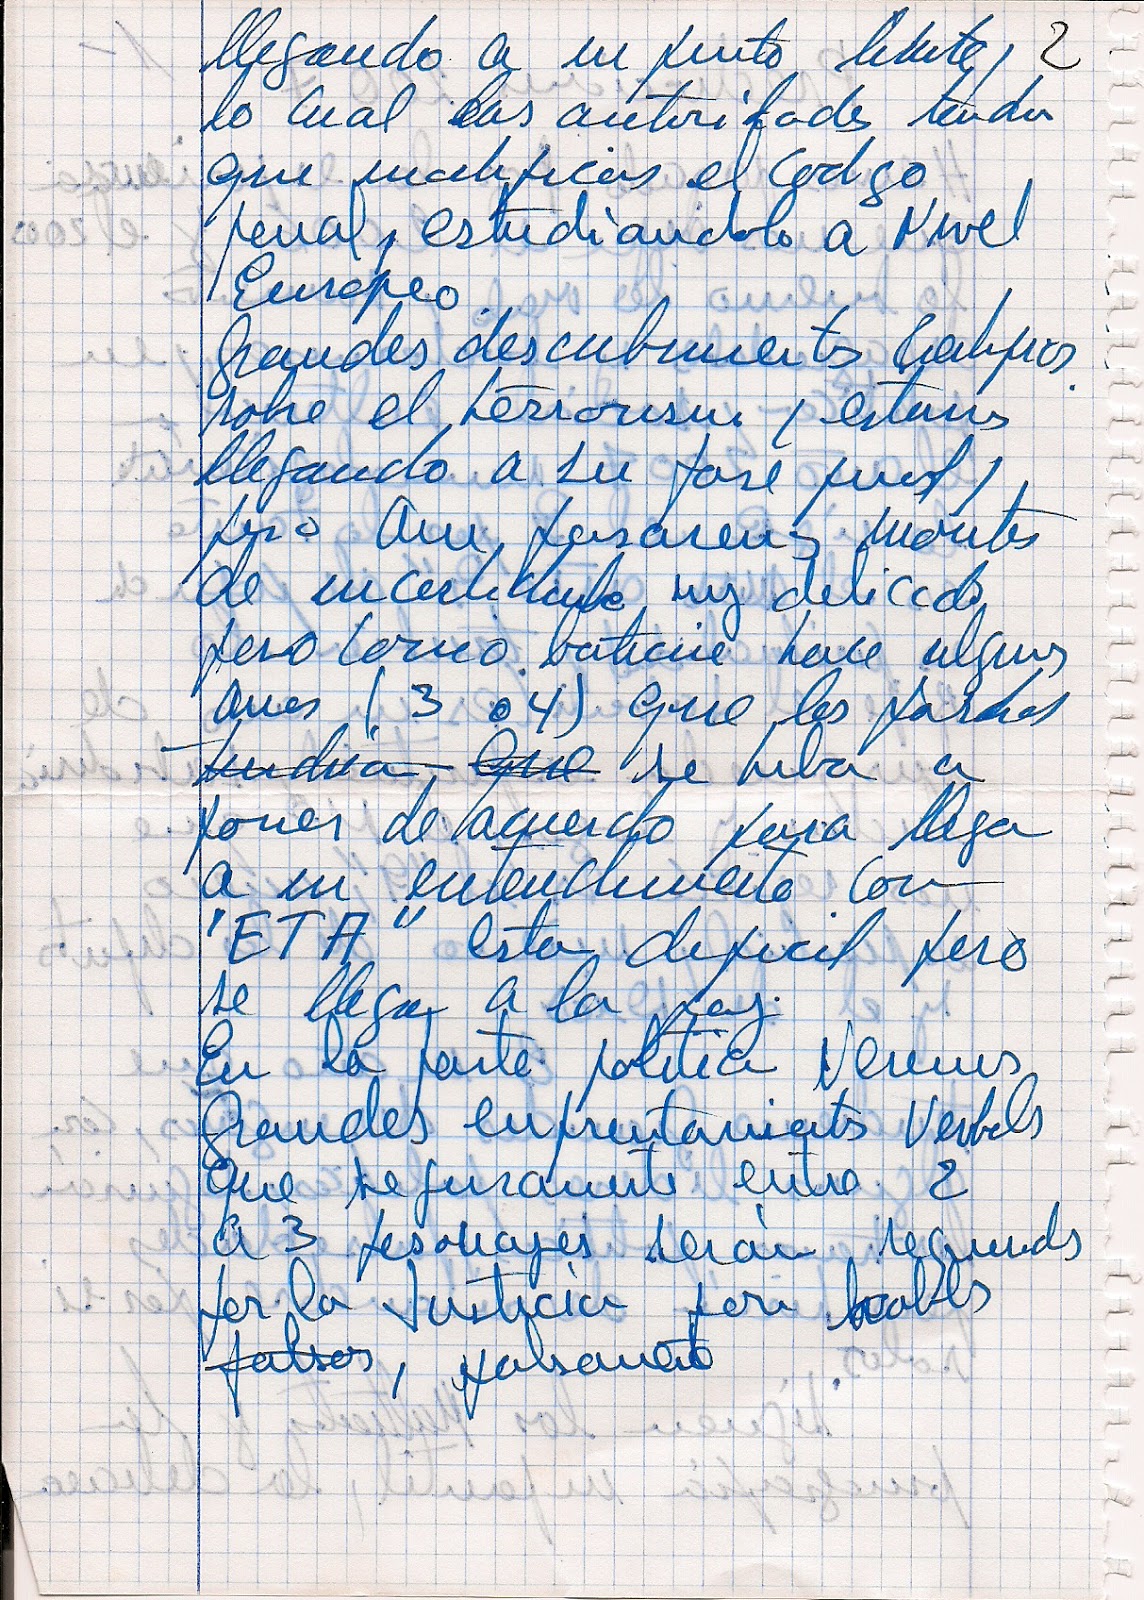 llegando a un punto limite, 2
lo cual las autoridades tendra
que modificar el codigo
penal, estudiandolo a Nivel
Europeo
Grandes descubrimientos
sobre el terrorismo, estamos
llegando a su fase final,
pero aun pasaremos momentos
de incertidumbe muy delicados
pero como baticine hace algunos
años (3 o 4) que los partidos
tendria que se hiba a
poner de aquerdo para llega
a un entendimiento con
"ETA" esta dificil pero
se llega a la paz.
En la parte politica Veremos
grandes enfrentamientos Verbals
que seguramente entre 2
a 3 personajes serán
por la Justicia por
falsos, falsamente